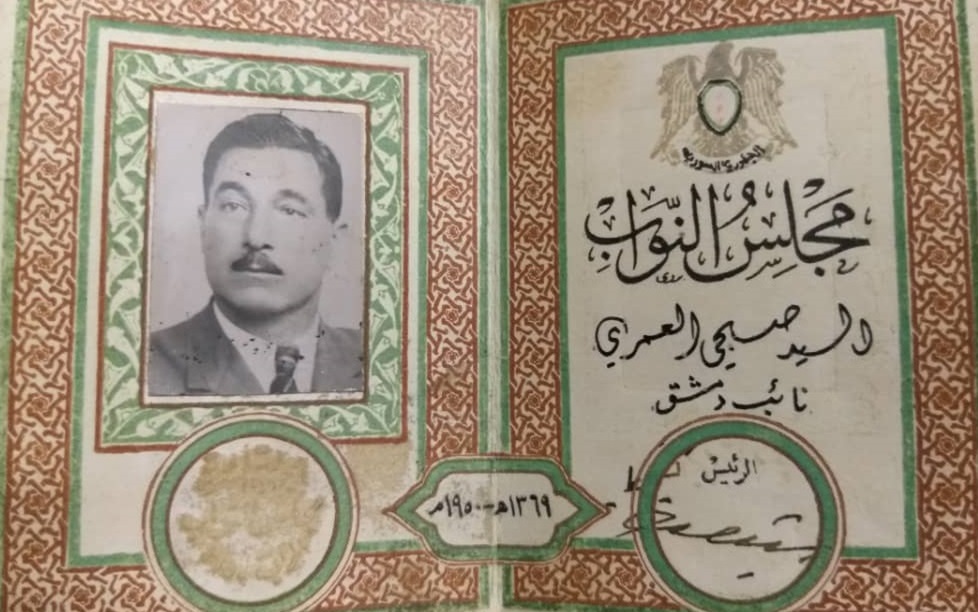 الجمهورية السورية
مجلس النواب
السيد صبحي العمري
نائب دمشق
الرئيس
١٣٦٩هـ - ١٩٥٠م